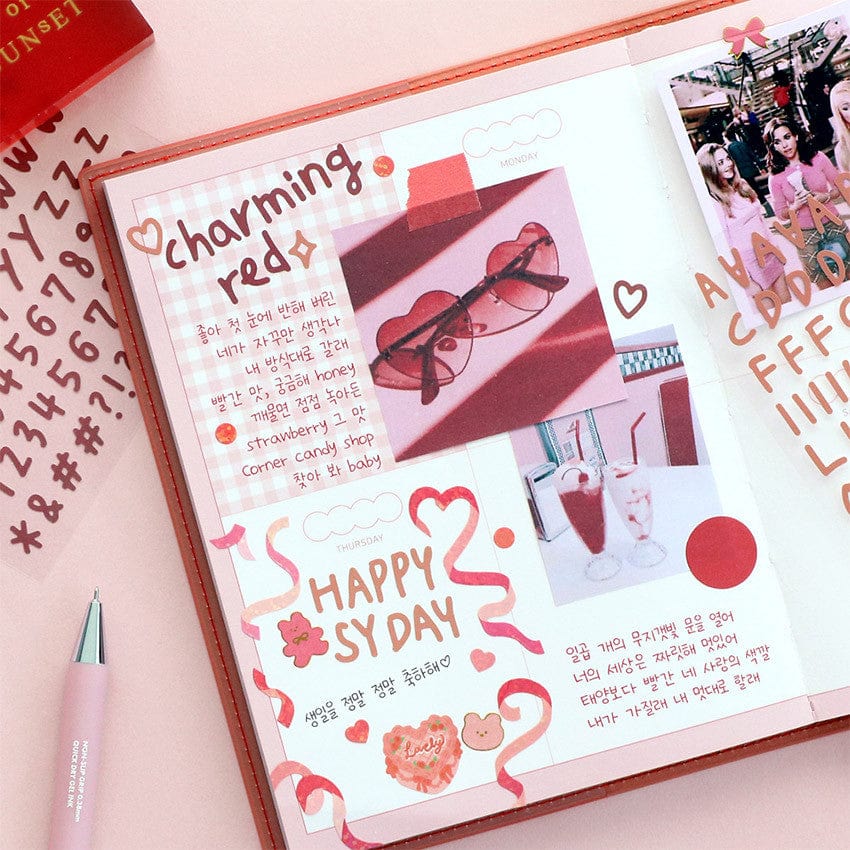 of
SUNSET
MONDAY
charming
red
좋아 첫 눈에 반해 버린
네가 자꾸만 생각나
내 방식대로 갈래
빨간 맛, 궁금해 honey
깨물면 점점 녹아든
strawberry 그 맛
corner candy shop
찾아 봐 baby
THURSDAY
HAPPY
SY DAY
생일을 정말 정말 축하해♡
Lucky
일곱 개의 무지갯빛 문을 열어
너의 세상은 짜릿해 멋있어
태양보다 빨간 네 사랑의 색깔
내가 가질래 내 멋대로 할래
NON-SLIP GRIP 0.38mm
QUICK DRY GEL INK